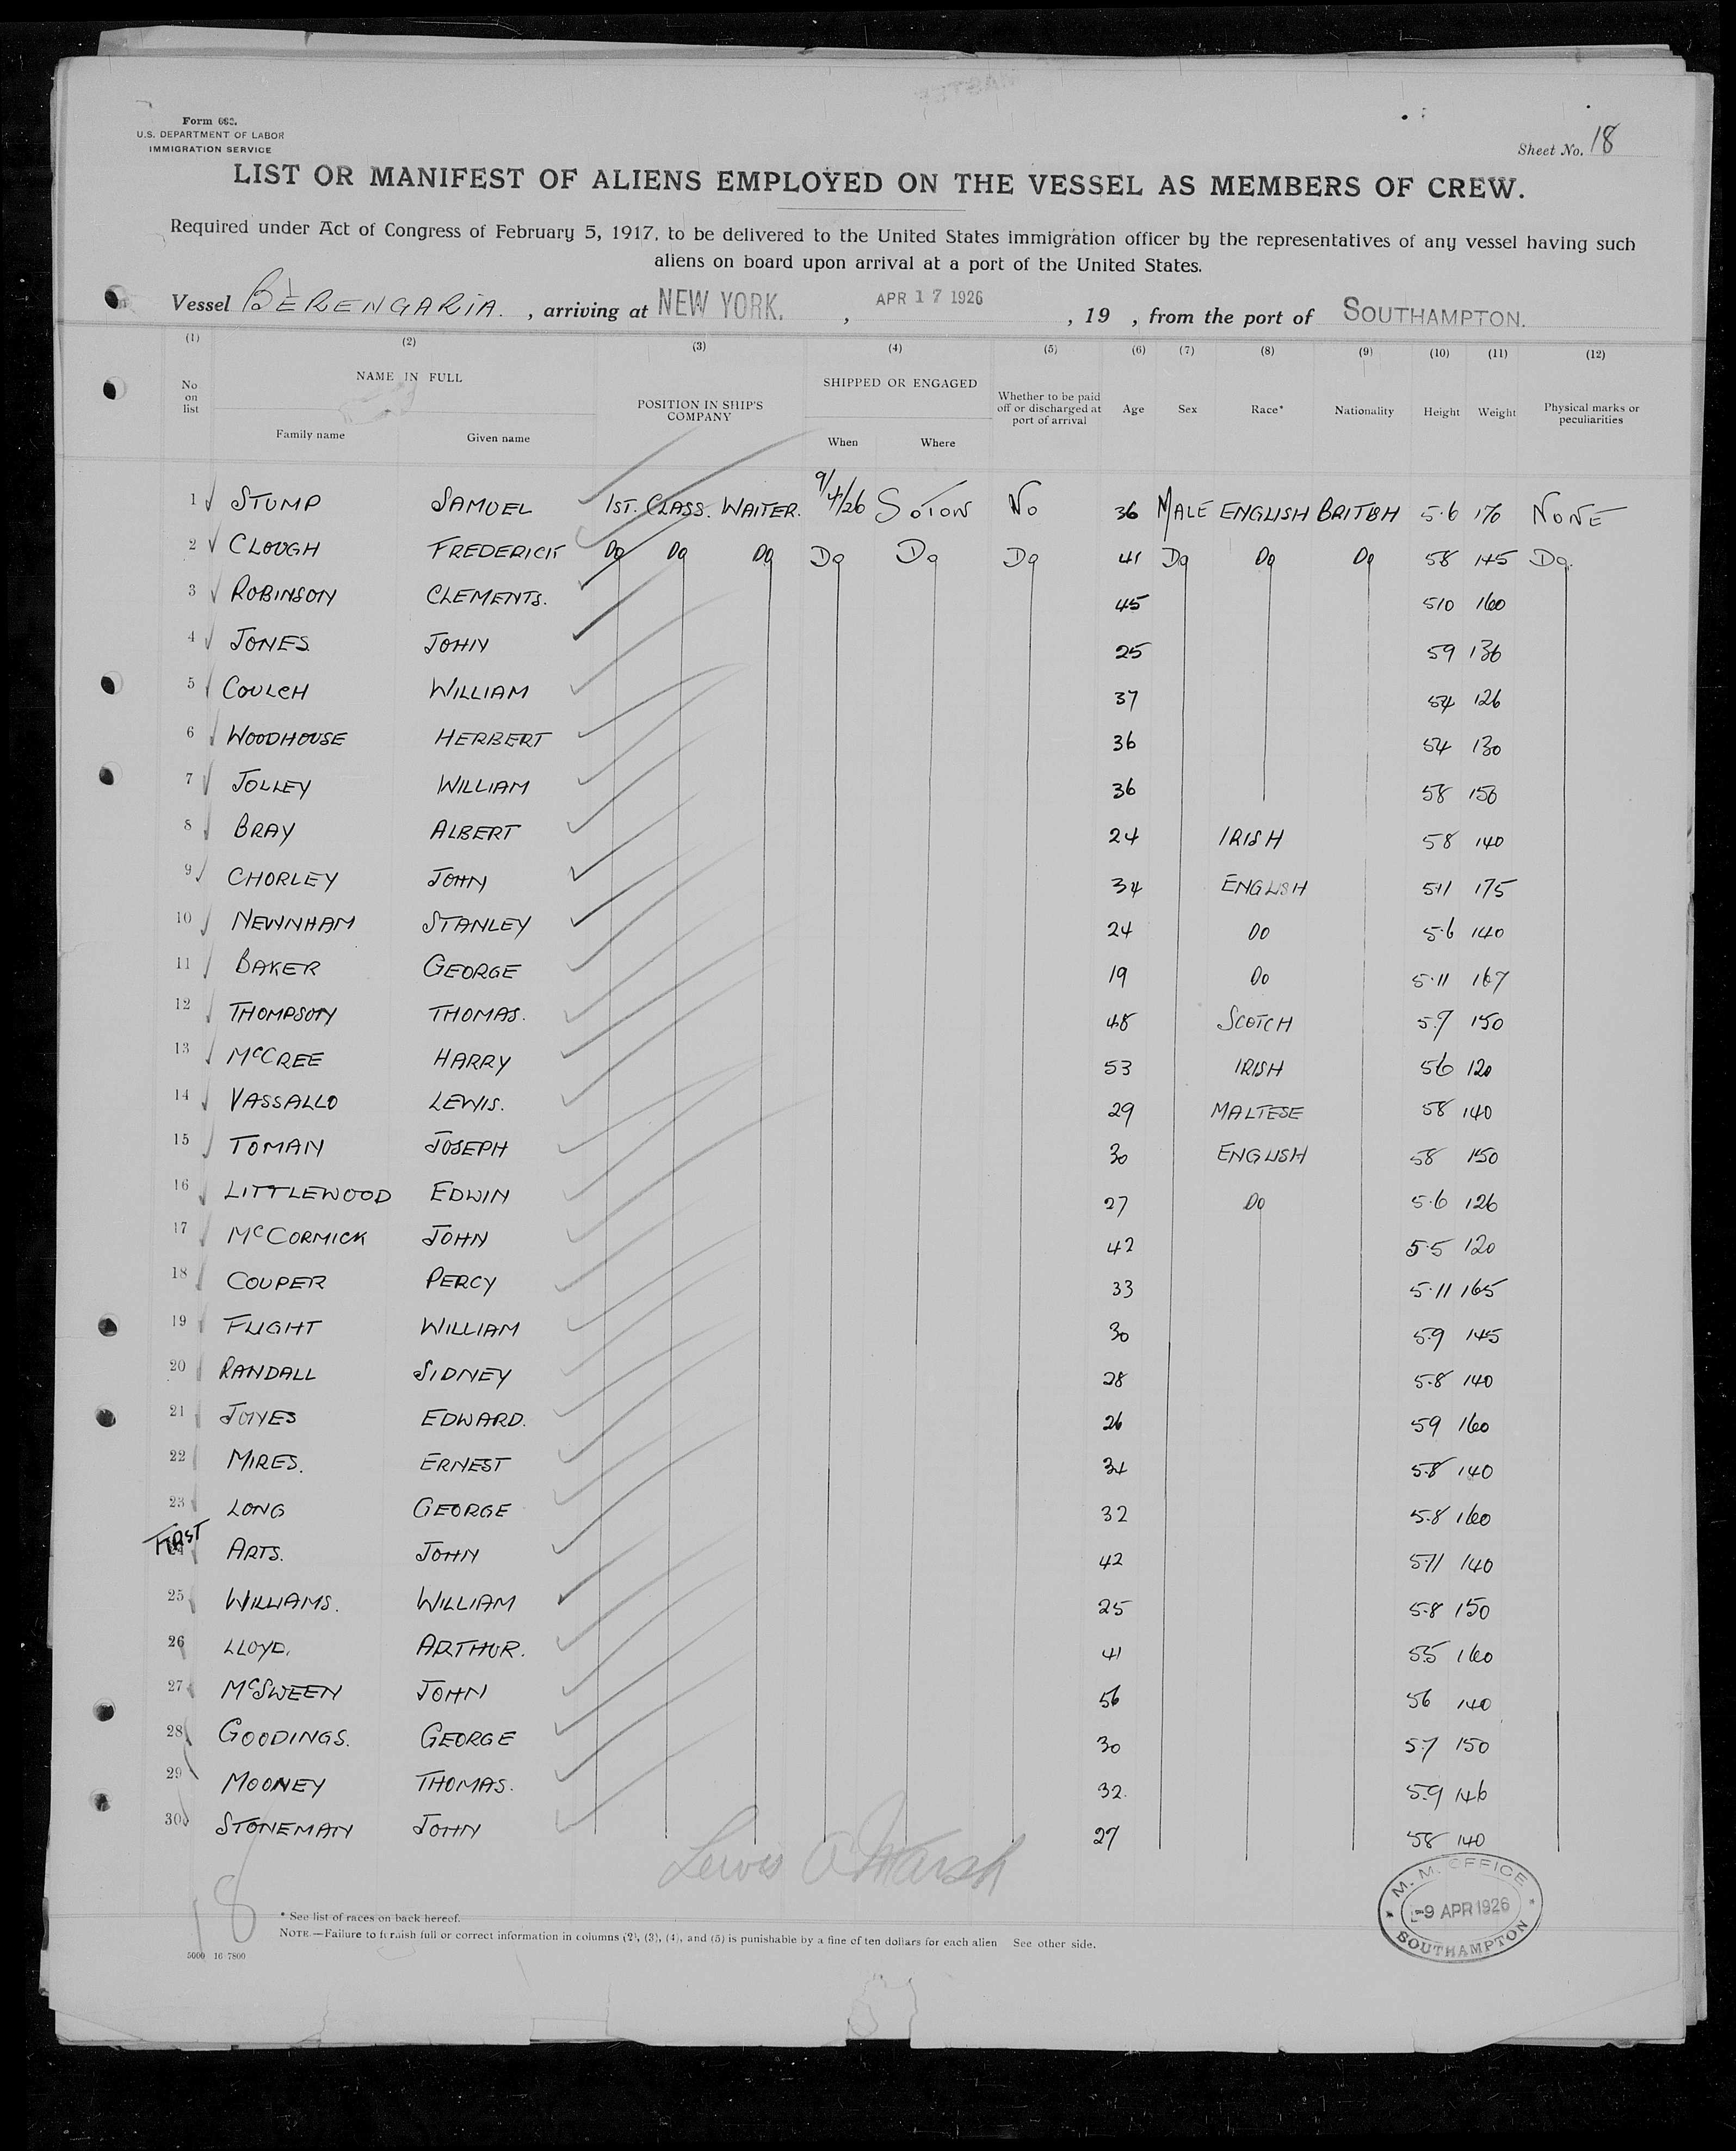 Form 680.
U.S. DEPARTMENT OF LABOR
IMMIGRATION SERVICE
Sheet No. 18
LIST OR MANIFEST OF ALIENS EMPLOYED ON THE VESSEL AS MEMBERS OF CREW.
Required under Act of Congress of February 5, 1917, to be delivered to the United States immigration officer by the representatives of any vessel having such
aliens on board upon arrival at a port of the United States.
Vessel BERENGARIA. , arriving at NEW YORK. , APR 17 1926 , 19 , from the port of SOUTHAMPTON.
(1) (2) (3) (4) (5) (6) (7) (8) (9) (10) (11) (12)
No on list NAME IN FULL Family name Given name POSITION IN SHIP'S COMPANY SHIPPED OR ENGAGED When Where Whether to be paid off or discharged at port of arrival Age Sex Race* Nationality Height Weight Physical marks or peculiarities
1 STUMP SAMUEL 1ST. CLASS. WAITER. 9/4/26 SOTON NO 36 MALE ENGLISH BRITISH 5·6 170 NONE
2 CLOUGH FREDERICK Do Do Do Do Do Do 41 Do Do Do 58 145 Do.
3 ROBINSON CLEMENTS. 45 510 160
4 JONES. JOHN 25 59 136
5 COULCH WILLIAM 37 54 126
6 WOODHOUSE HERBERT 36 54 130
7 JOLLEY WILLIAM 36 58 150
8 BRAY ALBERT 24 IRISH 58 140
9 CHORLEY JOHN 34 ENGLISH 5·11 175
10 NEWNHAM STANLEY 24 DO 5·6 140
11 BAKER GEORGE 19 DO 5·11 167
12 THOMPSON THOMAS. 48 SCOTCH 5.9 150
13 McCREE HARRY 53 IRISH 56 120
14 VASSALLO LEWIS. 29 MALTESE 58 140
15 TOMAN JOSEPH 30 ENGLISH 58 150
16 LITTLEWOOD EDWIN 27 DO 5·6 126
17 McCORMICK JOHN 42 5·5 120
18 COUPER PERCY 33 5·11 165
19 FLIGHT WILLIAM 30 5.9 145
20 RANDALL SIDNEY 28 5.8 140
21 JOYES EDWARD. 26 59 160
22 MIRES. ERNEST 34 5.8 140
23 LONG GEORGE 32 5.8 160
FIRST
24 ARTS. JOHN 42 5.11 140
25 WILLIAMS. WILLIAM 25 5.8 150
26 LLOYD. ARTHUR. 41 5.5 160
27 McSWEEN JOHN 56 56 140
28 GOODINGS. GEORGE 30 5.7 150
29 MOONEY THOMAS. 32. 5.9 146
30 STONEMAN JOHN 27 58 140
Lewis A Marsh
18
* See list of races on back hereof.
NOTE.—Failure to furnish full or correct information in columns (2), (3), (4), and (5) is punishable by a fine of ten dollars for each alien See other side.
5000 16-7800
M. M. OFFICE
-9 APR 1926
SOUTHAMPTON